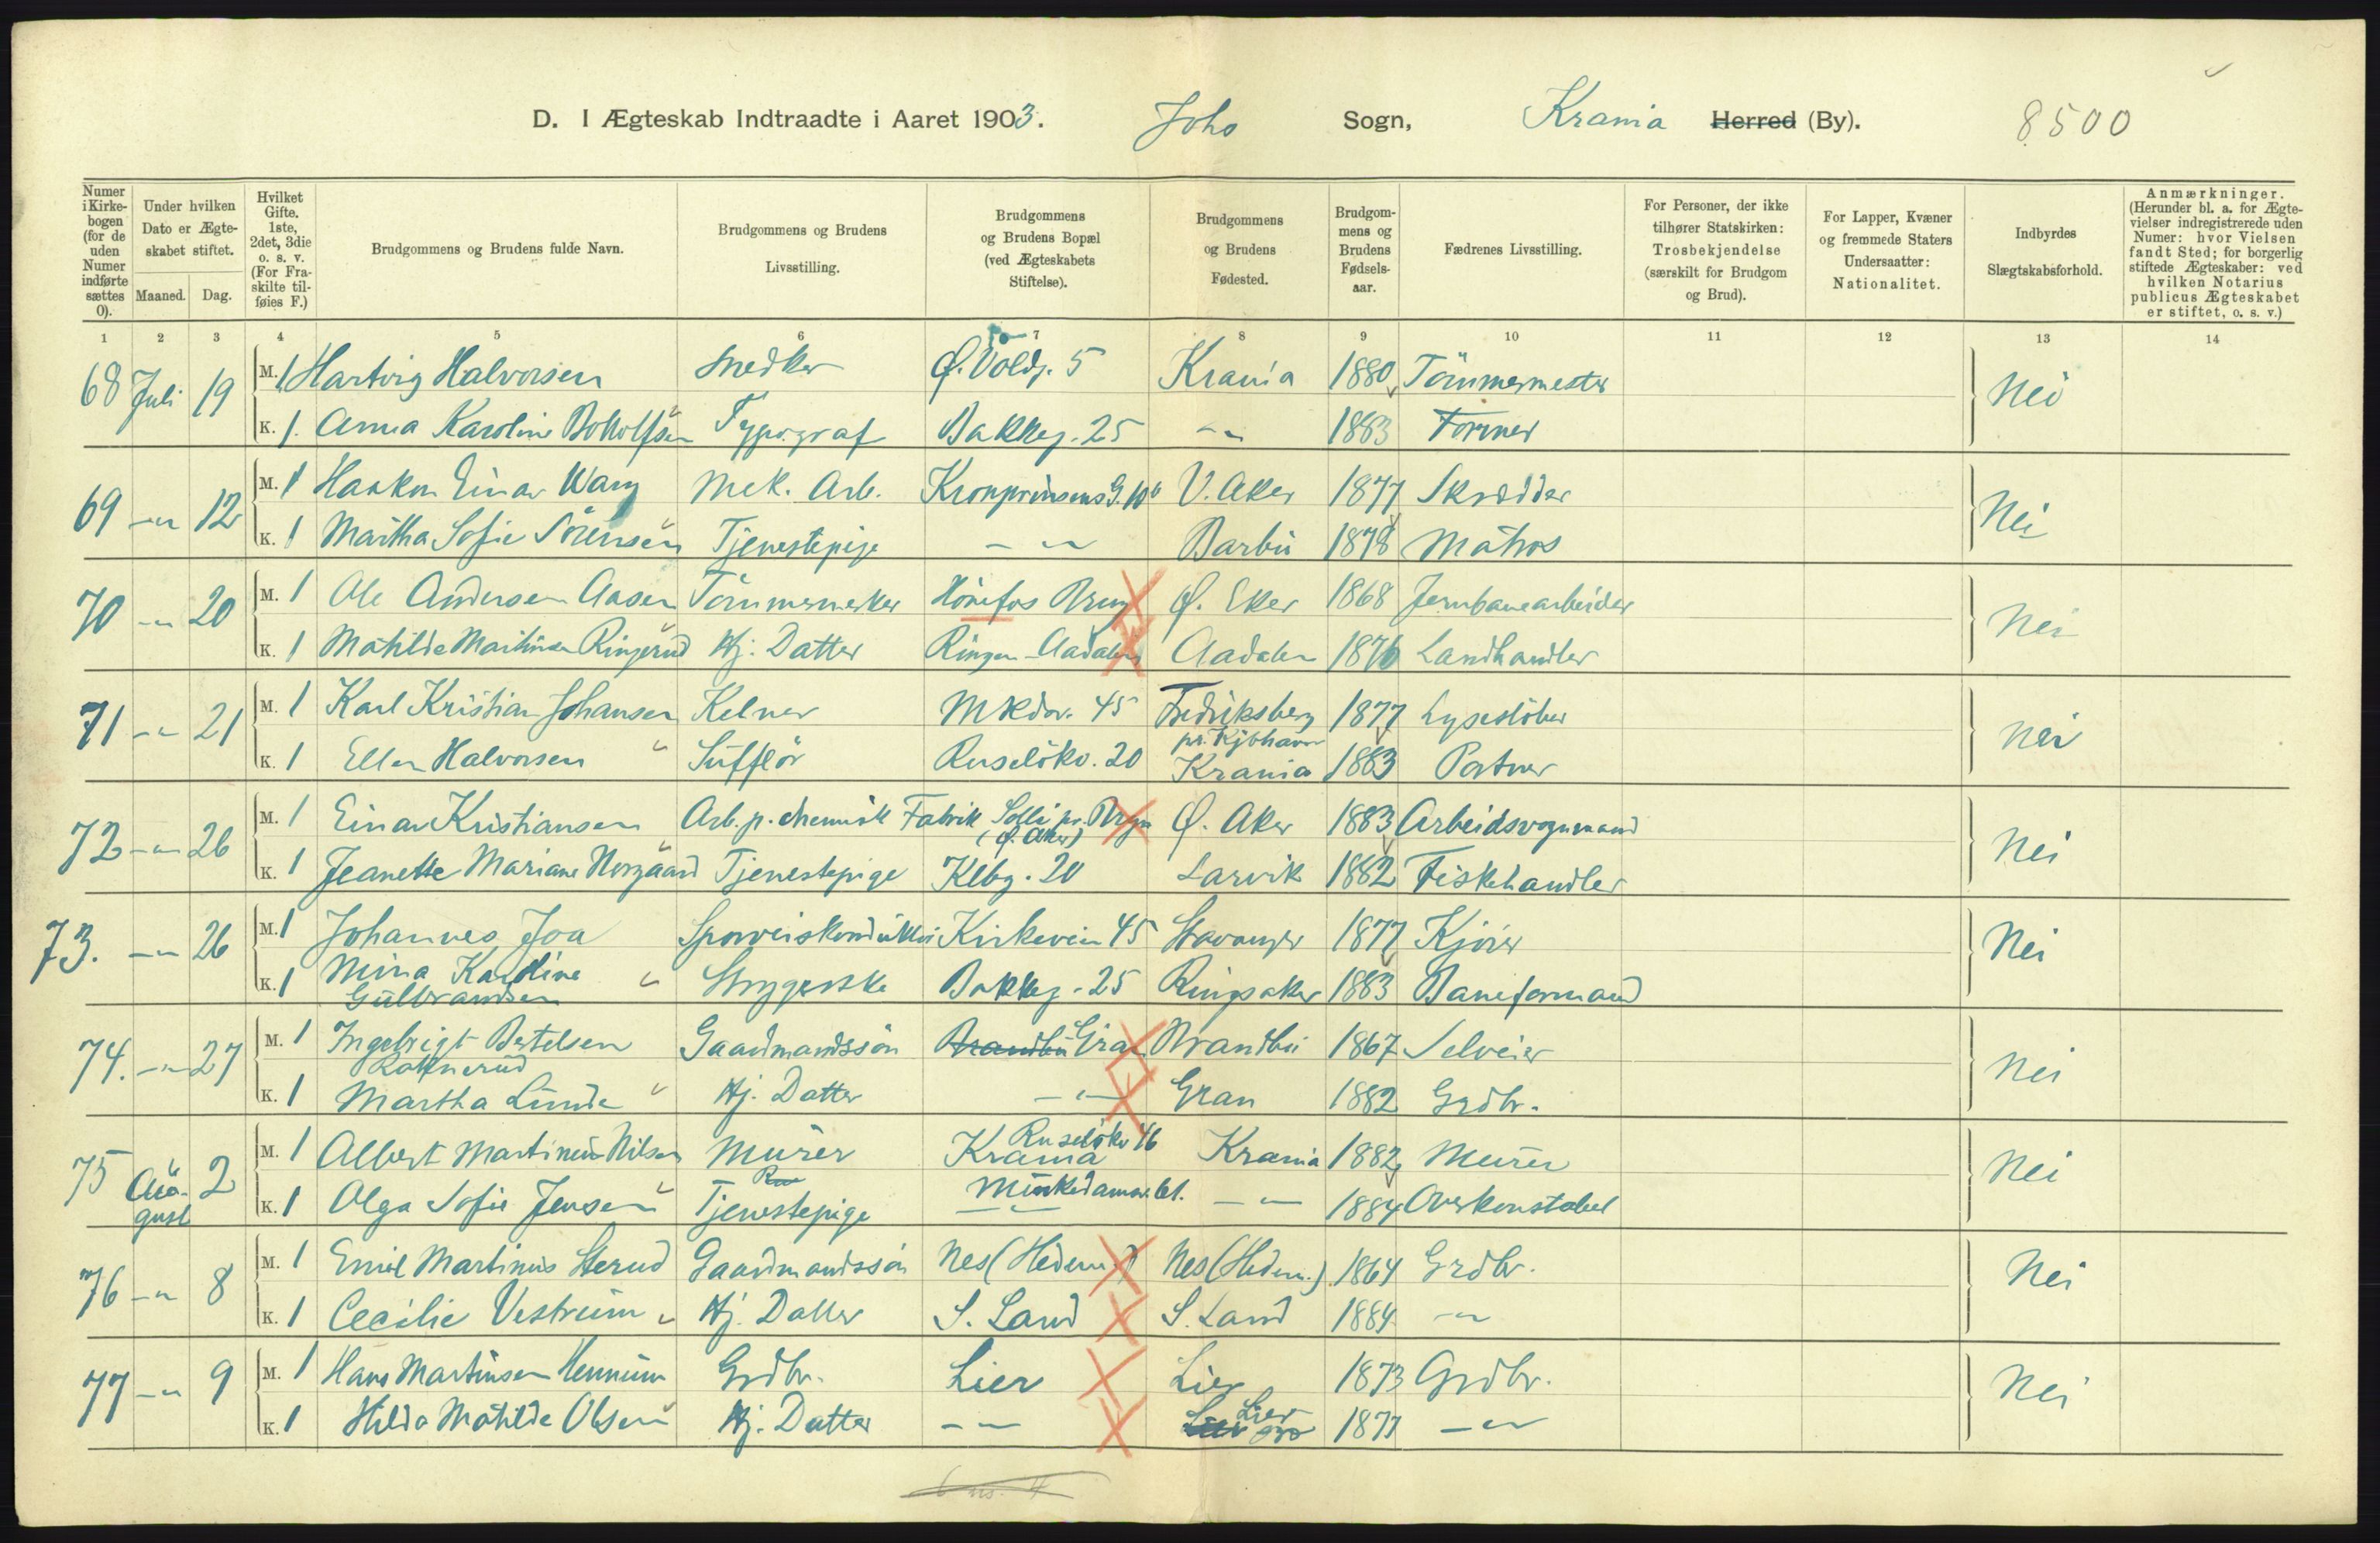 D. I Ægteskab Indtraadte i Aaret 1903. Joho Sogn, Krania Herred (By). 8500
Numer i Kirkebogen (for de uden Numer indførte sættes 0).
Under hvilken Dato er Ægteskabet stiftet.
Maaned. Dag.
Hvilket Gifte. 1ste, 2det, 3die o. s. v. (For Fraskilte tilføies F.)
Brudgommens og Brudens fulde Navn.
Brudgommens og Brudens Livsstilling.
Brudgommens og Brudens Bopæl (ved Ægteskabets Stiftelse).
Brudgommens og Brudens Fødested.
Brudgommens og Brudens Fødselsaar.
Fædrenes Livsstilling.
For Personer, der ikke tilhører Statskirken: Trosbekjendelse (særskilt for Brudgom og Brud).
For Lapper, Kvæner og fremmede Staters Undersaatter: Nationalitet.
Indbyrdes Slægtskabsforhold.
Anmærkninger. (Herunder bl. a. for Ægtevielser indregistrerede uden Numer: hvor Vielsen fandt Sted; for borgerlig stiftede Ægteskaber: ved hvilken Notarius publicus Ægteskabet er stiftet, o. s. v.)
1 2 3 4 5 6 7 8 9 10 11 12 13 14
68 Juli 19 M. 1 Hartvig Halvorsen Snedker Ø. Voldg. 5 Krania 1880 Tömmermester Nei
K. 1. Anna Karoline Typograf Bakkeg. 25 -"- 1883 Former
69 -"- 12 M. 1 Haakon Einar Wang Mek. Arb. Kronprinsens G. 10 V. Aker 1877 Skrædder Nei
K. 1 Martha Sofie Sörensen Tjenestepige -"- Barbu 1878 Matros
70 -"- 20 M. 1 Ole Andersen Aasen Tömmermerker Hönefos Ø. Eker 1868 Jernbanearbeider Nei
K. 1 Mathilde Martinsen Ringerud Hj. Datter Ringer. Aadalen Aadalen 1876 Landhandler
71 -"- 21 M. 1 Karl Kristian Johansen Kelner Mkdv. 45 Fredriksberg pr. Kjbhavn 1877 Lysestöber Nei
K. 1 Ellen Halvorsen " Sufflör Ruselökv. 20 Krania 1883 Portner
72 -"- 26 M. 1 Einar Kristiansen Arb. p. chemisk Fabrik Solli pr. Bryn (Ø. Aker) Ø. Aker 1883 Arbeidsvognmand Nei
K. 1 Jeanette Mariane Norgaard Tjenestepige Klbg. 20 Larvik 1882 Fiskehandler
73. -"- 26 M. 1 Johannes Joa Sporveiskonduktör Kirkevein 45 Stavanger 1877 Kjörer Nei
K. 1 Mina Karoline Gulbrandsen " Strygerske Bakkeg. 25 Ringsaker 1883 Baneformand
74. -"- 27 M. 1 Ingebrigt Bertelsen Gaardmandssön Brandbu Gran Brandbu 1867 Selveier Nei
K. 1 Martha Lunde " Hj. Datter -"- Gran 1882 Grdbr.
75 August 2 M. 1 Albert Martinius Nilsen Murer Krania Ruselökv 46 Krania 1882 Murer Nei
K. 1 Olga Sofie Jensen Tjenestepige Munkedamsv. 61. -"- 1884 Overkonstabel
76 -"- 8 M. 1 Emil Martinius Sterud Gaardmandssön Nes (Hedem.) Nes (Hedem.) 1864 Grdbr. Nei
K. 1 Cecilie Vestrum " Hj. Datter S. Land S. Land 1884 -"-
77 -"- 9 M. 1 Hans Martinsen Hennum Grdbr. Lier Lier 1873 Grdbr. Nei
K. 1 Hilda Mathilde Olsen Hj. Datter -"- Lier 1877 -"-